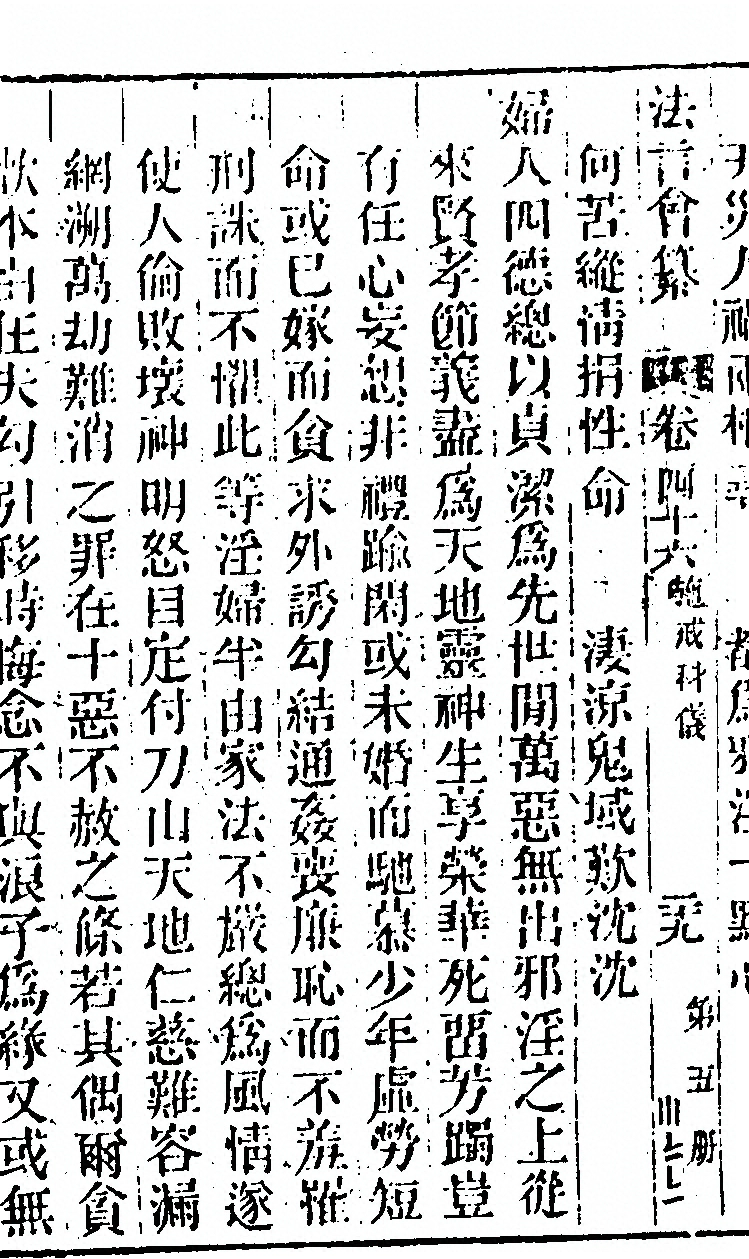 法言會纂
卷四十六
戒科儀
元
第五册
何苦縱情捐性命　淒涼鬼域歎沈沈
婦人四德總以貞潔爲先世間萬惡無出邪淫之上從
來賢孝節義盡爲天地靈神生享榮華死留芳躅豈
有任心妄想非禮踰閑或未婚而馳慕少年虛勞短
命或已嫁而貪求外誘勾結通姦喪廉恥而不羞罹
刑誅而不懼此等淫婦半由家法不嚴總爲風情遂
使人倫敗壞神明怒目定付刀山天地仁慈難容漏
網溯萬劫難消之罪在十惡不赦之條若其偶爾貪
本由狂夫勾引移時悔念不與浪子爲緣又或無